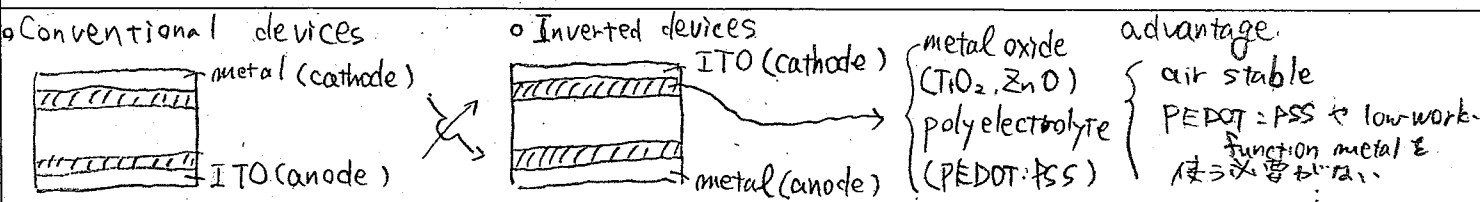 o Conventional devices
metal (cathode)
ITO (anode)
o Inverted devices
ITO (cathode)
metal (anode)
metal oxide
(TiO₂, ZnO)
polyelectrolyte
(PEDOT:PSS)
advantage.
air stable
PEDOT:PSS や low-work-
function metal を
使う必要がない